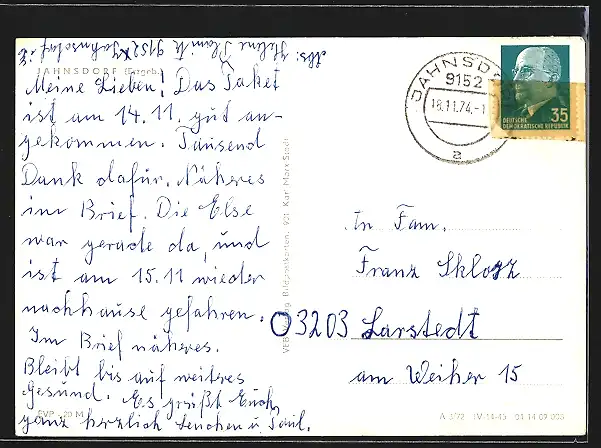 Abs: Helene 9152 Jahnsdorf i. E.
JAHNSDORF (Erzgeb.)
Meine Lieben! Das Paket
ist am 14.11. gut an-
gekommen. Tausend
Dank dafür. Näheres
im Brief. Die Else
war gerade da, und
ist am 15.11 wieder
nachhause gefahren.
Im Brief näheres.
Bleibt bis auf weiteres
Gesund. Es grüßt Euch,
ganz herzlich Lenchen u. Paul.
EVP - 20 M
VEB Bild Bildpostkarten, 901 Karl-Marx-Stadt
JAHNSDO
9152
18.11.74.-1
a
35
DEUTSCHE
DEMOKRATISCHE REPUBLIK
In Fam.
Franz Sklorz
O3203 Sarstedt
am Weiher 15
A 3/72 IV-14-45 01 14 09 003